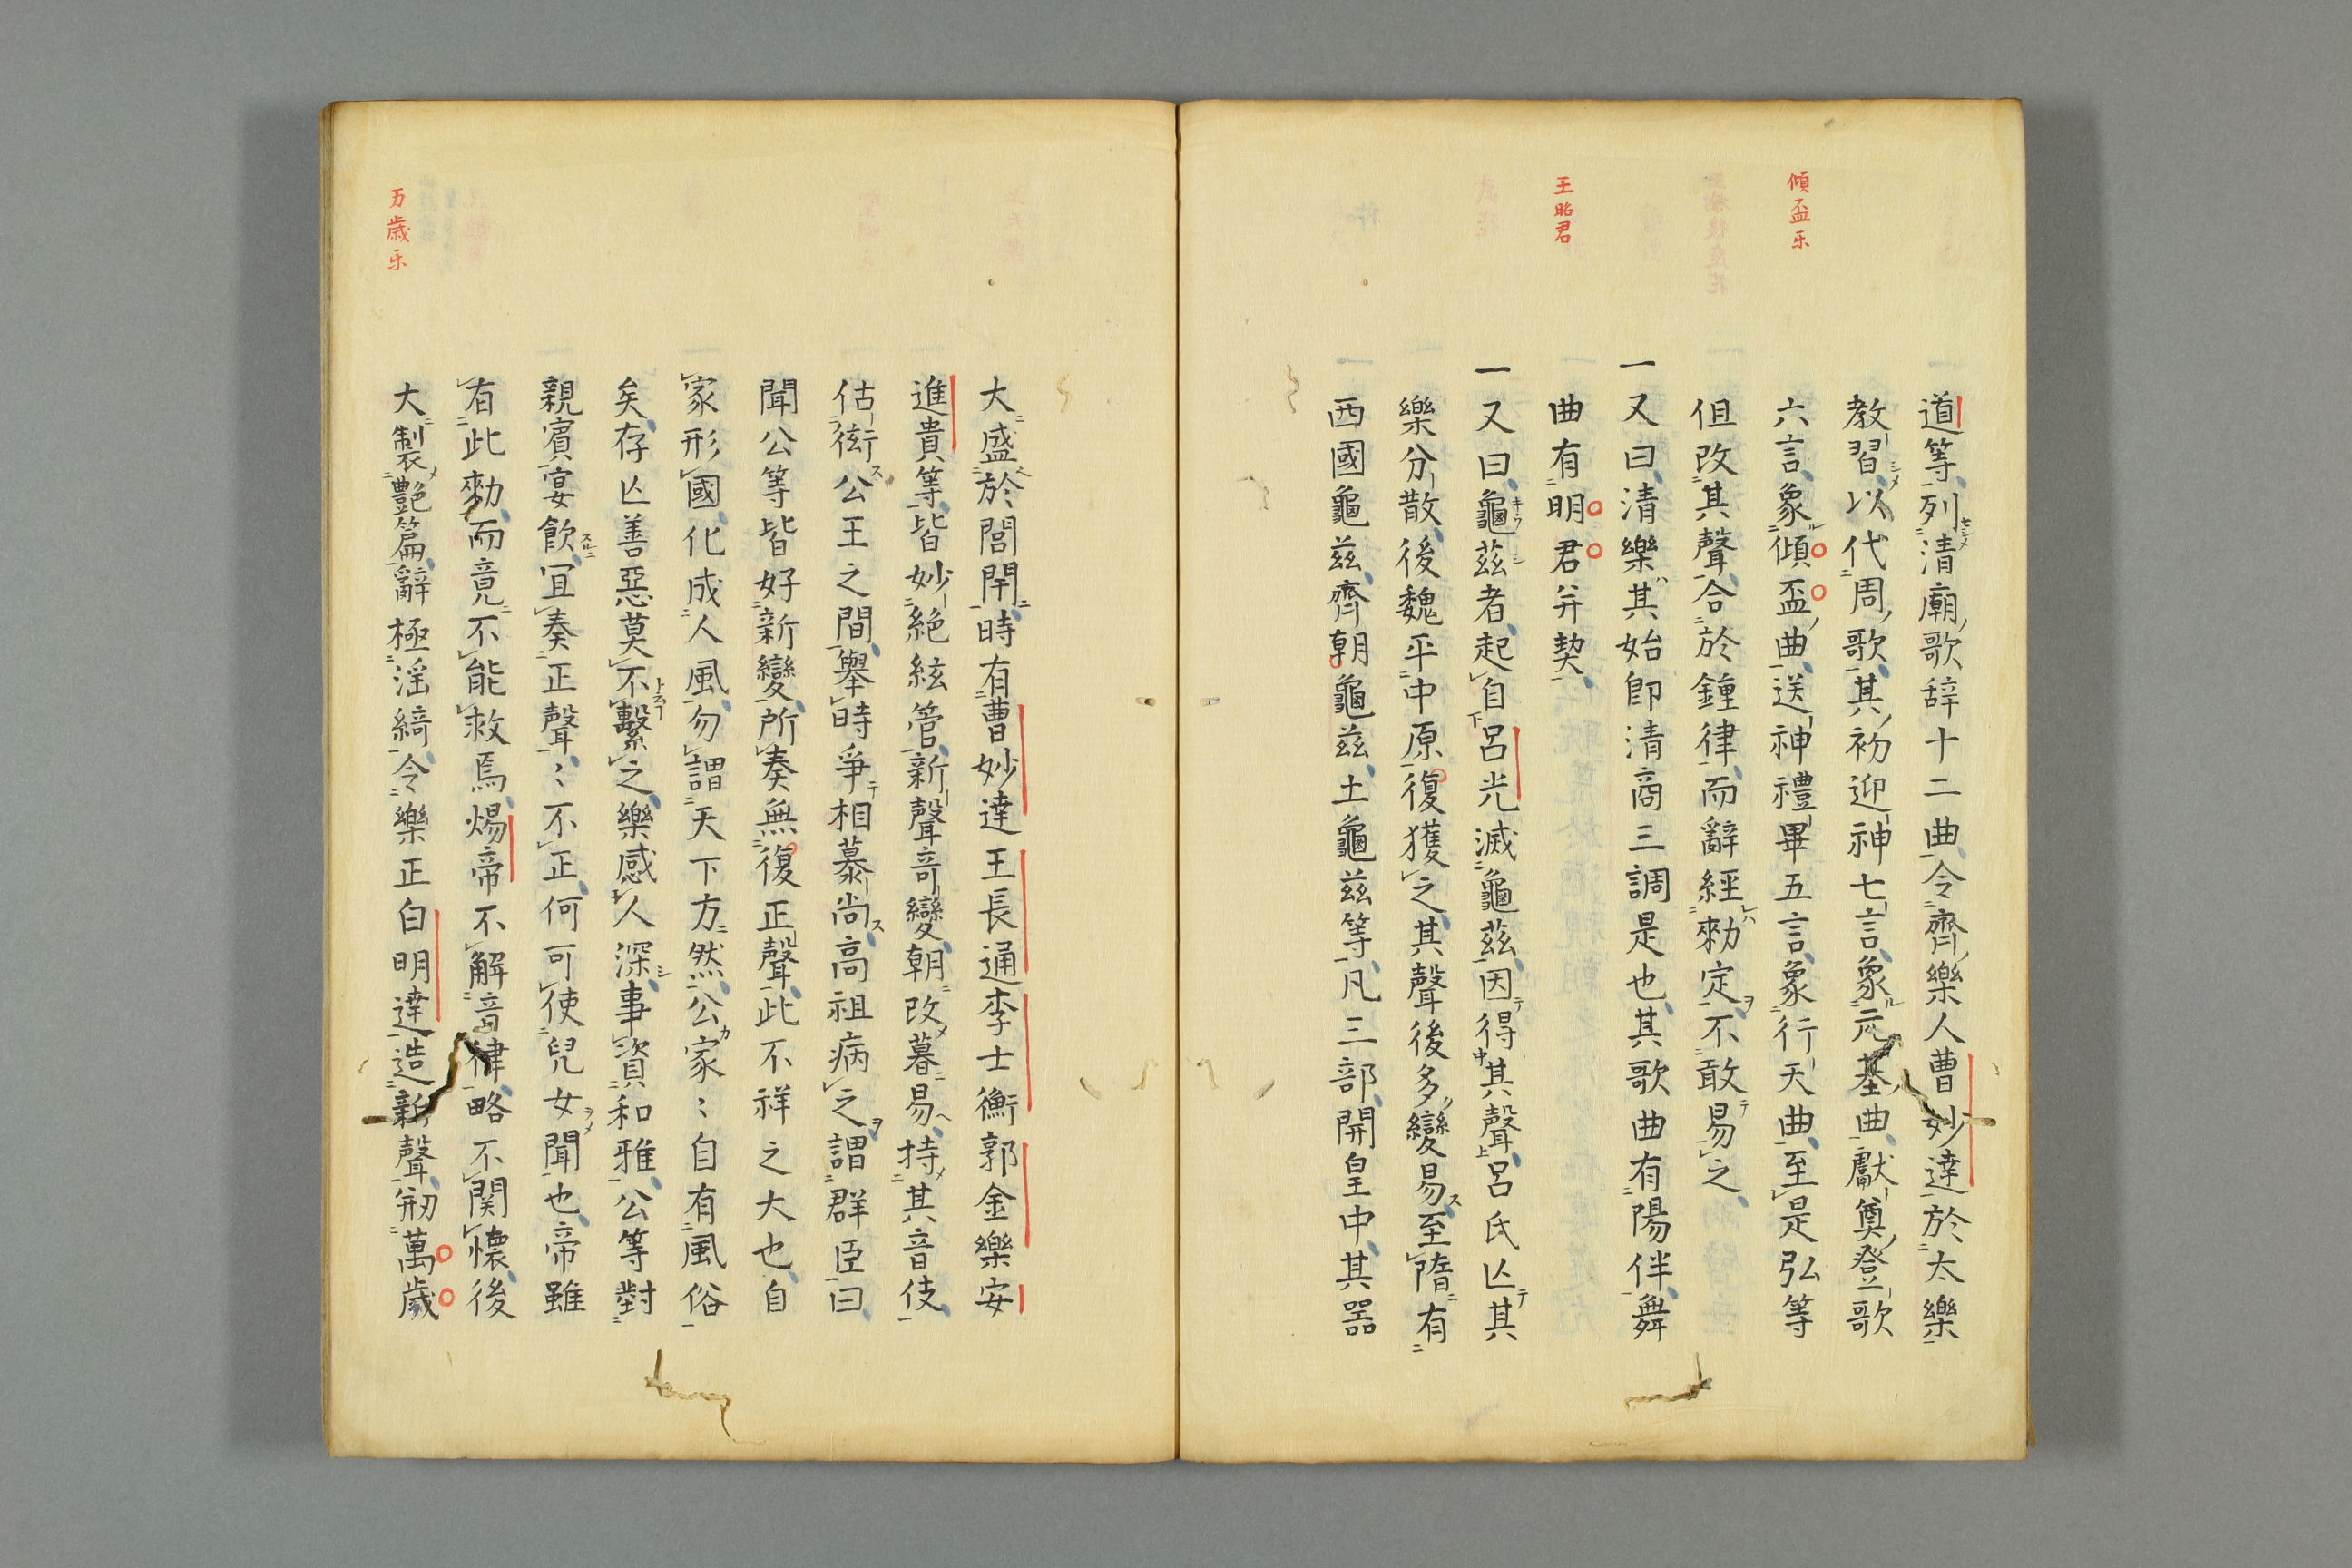 傾盃乐
王昭君
道等列清廟歌辞十二曲令齊樂人曹妙達於太樂
教習以代周歌其初迎神七言象元基曲獻奠登歌
六言象傾盃曲送神禮畢五言象行天曲至是弘等
但改其聲合於鍾律而辭經勑定不敢易之
一又曰清樂其始即清商三調是也其歌曲有陽伴舞
曲有明君并契
一又曰龜茲者起自呂光滅龜茲因得其聲呂氏亾其
樂分散後魏平中原復獲之其聲後多變易至隋有
西國龜茲齊朝龜茲土龜茲等凡三部開皇中其器
万歳乐
大盛於閭閈時有曹妙達王長通李士衡郭金樂安
進貴等皆妙絶絃管新聲奇變朝改暮易持其音伎
估衒公王之間舉時爭相慕尚高祖病之謂群臣曰
聞公等皆好新變所奏無復正聲此不祥之大也自
家形國化成人風勿謂天下方然公家〻自有風俗
矣存亾善惡莫不繫之樂感人深事資和雅公等對
親賓宴飲冝奏正聲〻不正何可使兒女聞也帝雖
有此勑而竟不能救焉煬帝不解音律略不関懷後
大製艶篇辭極淫綺令樂正白明達造新聲剏萬歲